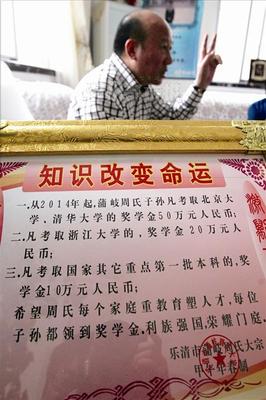 知识改变命运
一.从2014年起,蒲岐周氏子孙凡考取北京大
学、清华大学的奖学金50万元人民币;
二.凡考取浙江大学的,奖学金 20万元人
民币;
三.凡考取国家其它重点第一批本科的,奖
学金10万元人民币;
希望周氏每个家庭重教育塑人才,每位
子孙都领到奖学金,利族强国,荣耀门庭。
乐清市蒲岐周氏大宗
甲午年春制